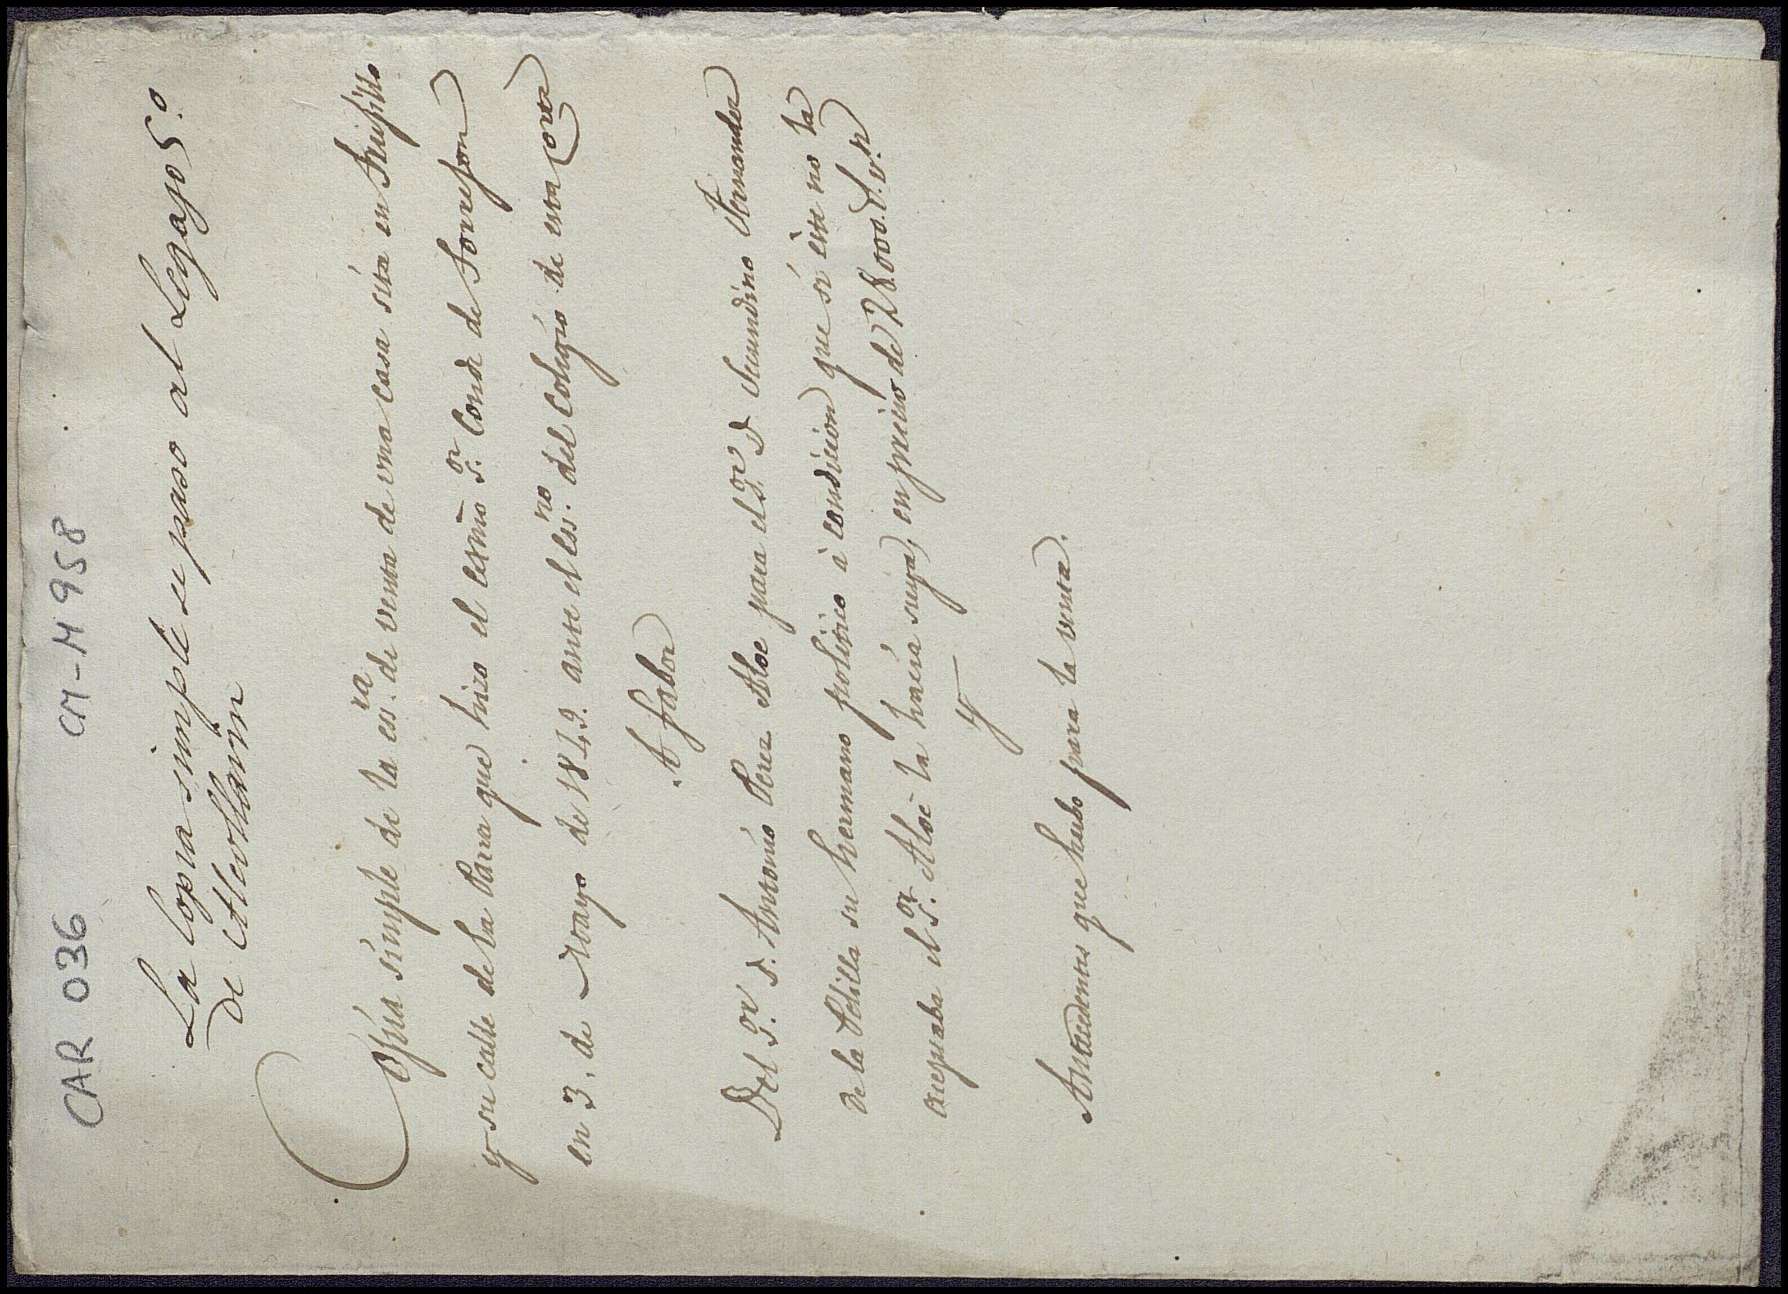 CAR 036 CM-M 958
La Copia simple se paso al Legajo 5.º
de Alcollarin
Copia simple de la es.ra de venta de una casa sita en Trugillo
y su calle de la Parra que hizo el exmo S.or Conde de Torrejon
en 3, de Mayo de 1849. ante el es.no del colegio de esta corte
A fabor
Del S.or D. Antonio Perez Aloe para el S.or D. Secundino Fernandez
de la Pelilla su hermano politico à condicion que si este no la
aceptaba el S.or Aloe la hacia suya, en precio de 28.000 r.s v.n
y
Antecedentes que hubo para la venta.